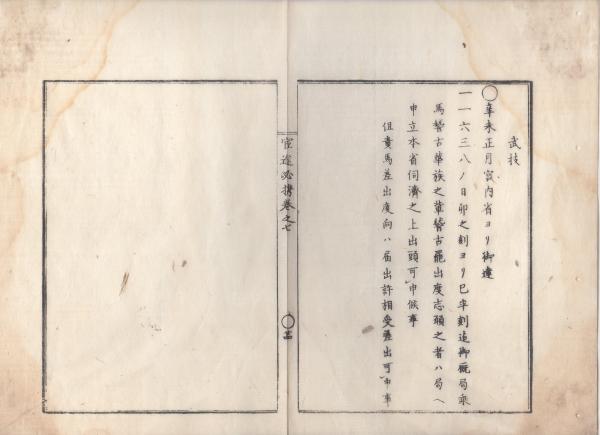 武技
○辛未正月宮内省ヨリ御達
一一六三八ノ日卯之刻ヨリ巳半刻迄御厩局乗
馬稽古華族之輩稽古罷出度志願之者ハ局ヘ
申立本省伺濟之上出頭可申候事
但貴馬差出度向ハ届出許相受差出可申事
官途必携巻之七
○